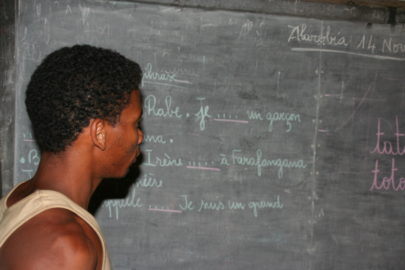 Alarobia 14 Nov
phrase
Rabe. Je ..... un garçon
na.
Irène ...... à Farafangana
ppelle ...... Je suis un grand
tat
toto